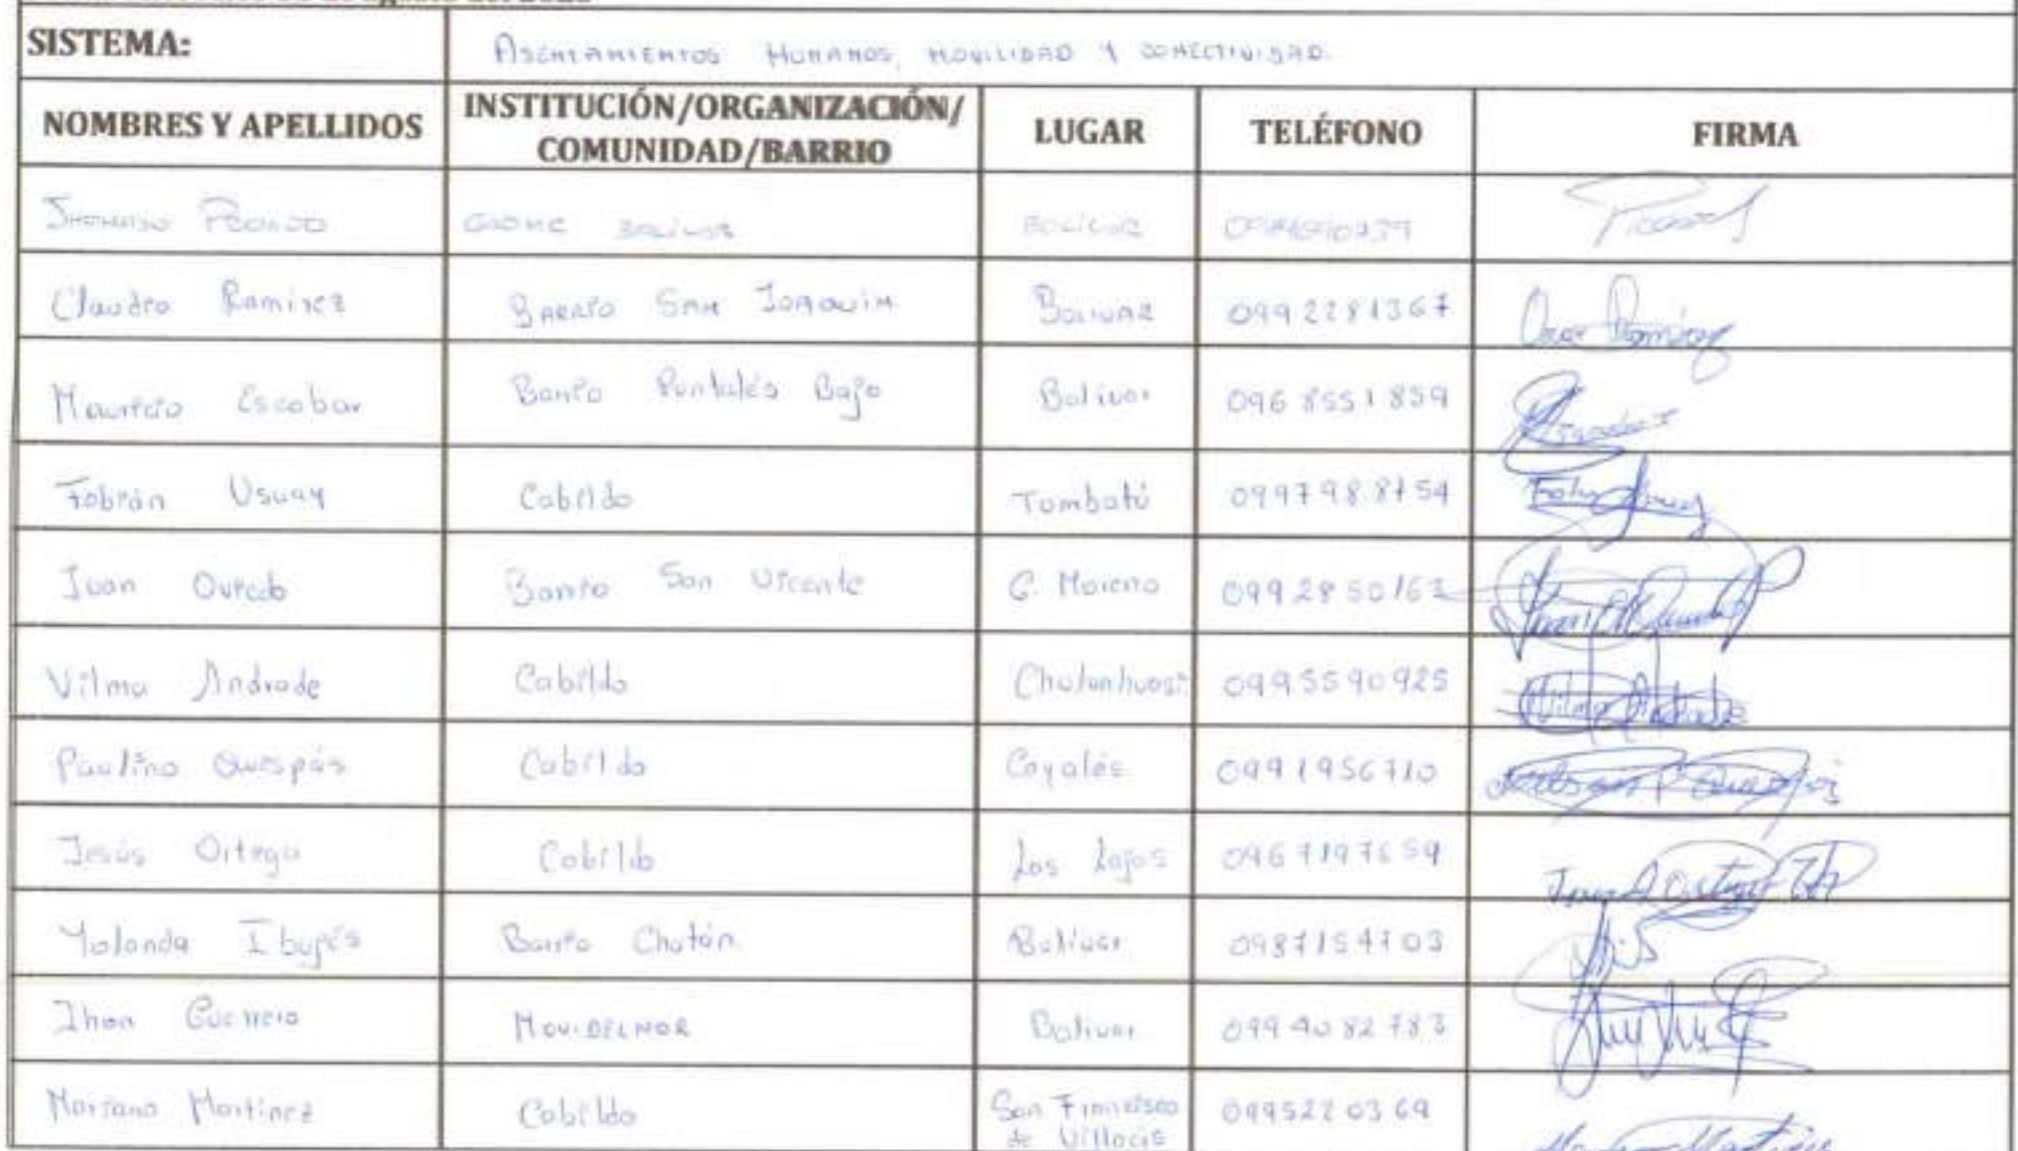 SISTEMA: ASENTAMIENTOS HUMANOS, MOVILIDAD Y CONECTIVIDAD.
NOMBRES Y APELLIDOS INSTITUCIÓN/ORGANIZACIÓN/ COMUNIDAD/BARRIO LUGAR TELÉFONO FIRMA
BOLÍVAR BOLÍVAR
Claudro Ramirez BARRIO SAN JOAQUIN BOLIVAR 0992281367
Mauricio Escobar Barrio Puntalés Bajo Bolivar 0968551859
Fabián Usuay Cabildo Tumbatú 0997988154
Juan Oviedo Barrio San Vicente G. Moreno
Vilma Andrade Cabildo Chulunhuasi 0995590925 Vilma Andrade
Paulino Quespás Cabildo Cayalés 0991956710
Jesús Ortega Cabildo Los Lajas 0967197659
Yolanda Ibujés Barrio Chután Bolívar 0987154703
Jhon Guerrero MOVIDELNOR Bolivar 0994082783
Mariano Martinez Cabildo San Francisco de Villacis 0995220369